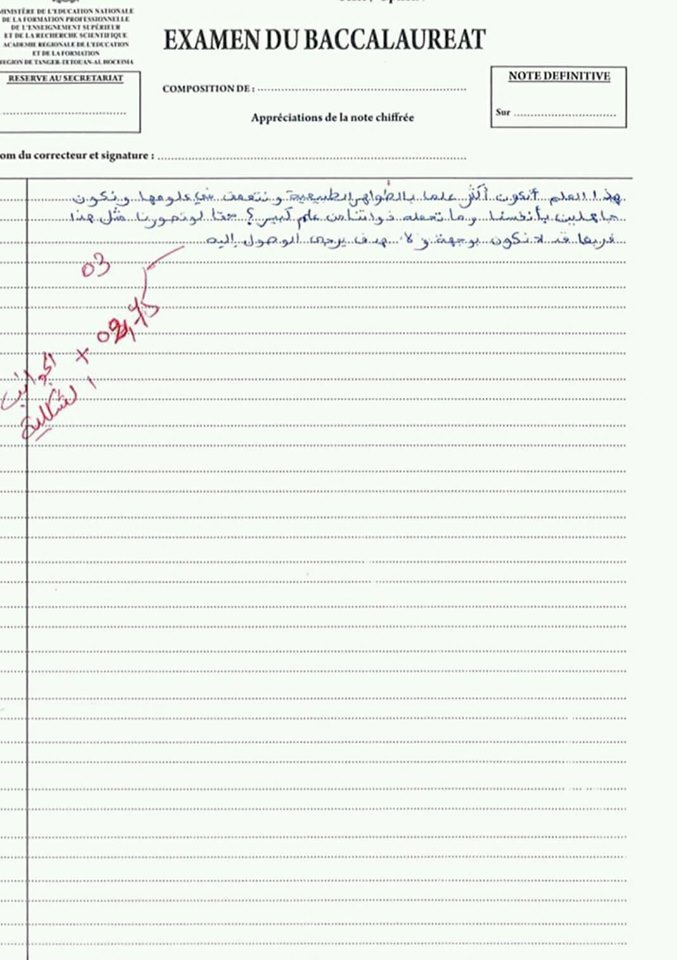 MINISTÈRE DE L'EDUCATION NATIONALE
DE LA FORMATION PROFESSIONNELLE
DE L'ENSEIGNEMENT SUPÉRIEUR
ET DE LA RECHERCHE SCIENTIFIQUE
ACADEMIE REGIONALE DE L'EDUCATION
ET DE LA FORMATION
REGION DE TANGER-TETOUAN-AL HOCEIMA
EXAMEN DU BACCALAUREAT
RESERVE AU SECRETARIAT
COMPOSITION DE :
NOTE DEFINITIVE
Sur
Appréciations de la note chiffrée
nom du correcteur et signature :
بهذا العلم أنكون أكثر علما بالظواهر الطبيعية و نتعمق في علومها ونكون
جاهلين بأنفسنا وما تحمله ذواتنا من علم كبير؟ حتا لو تصورنا مثل هذا
فربما قد لا نكون بوجهة و لا هدف يرجى الوصول إليه
03
+
الجوانب
الشكلية